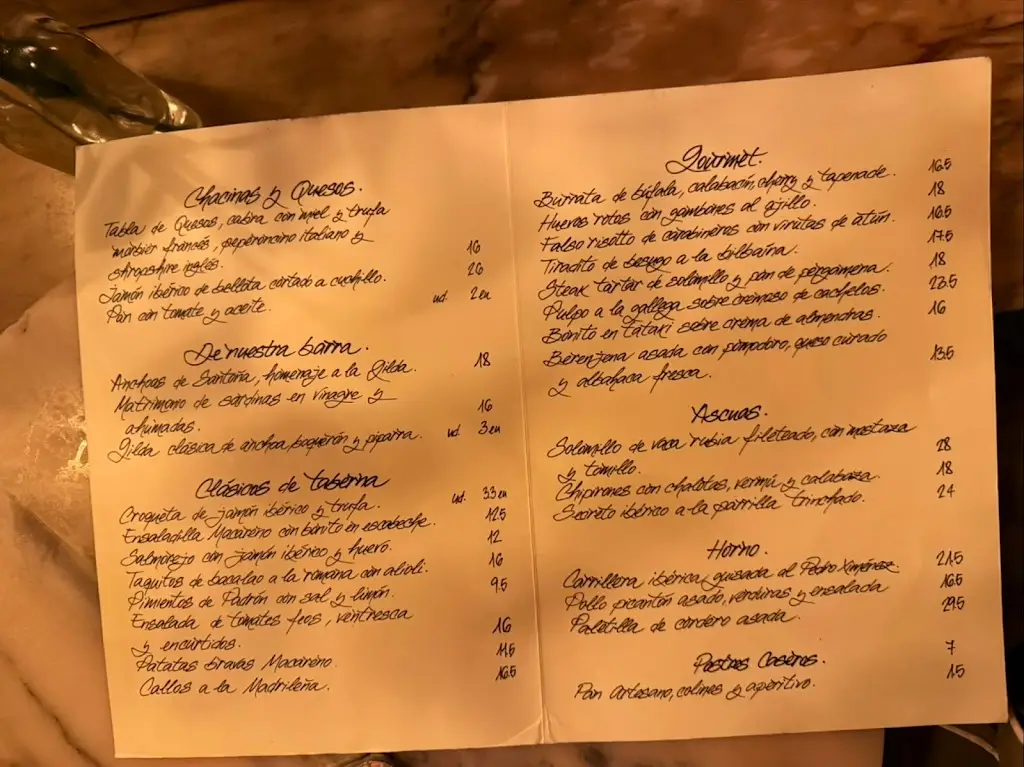 Chacinas y Quesos.
Tabla de Quesos, cabra con miel y trufa
morbier francés, peperoncino italiano y
shropshire inglés. 16
Jamón ibérico de bellota cortado a cuchillo. 26
Pan con tomate y aceite. ud. 2eu
De nuestra barra.
Anchoas de Santoña, homenaje a la Gilda. 18
Matrimonio de sardinas en vinagre y
ahumadas. 16
Gilda clásica de anchoa, boquerón y piparra. ud. 3eu
Clásicos de taberna
Croqueta de jamón ibérico y trufa. ud. 3.3eu
Ensaladilla Macareno con bonito en escabeche. 12.5
Salmorejo con jamón ibérico y huevo. 12
Taquitos de bacalao a la romana con alioli. 16
Pimientos de Padrón con sal y limón. 9.5
Ensalada de tomates feos, ventresca
y encurtidos. 16
Patatas bravas Macareno. 11.5
Callos a la Madrileña. 16.5
Gourmet.
Burrata de búfala, calabacín, cherry y tapenade. 16.5
Huevos rotos con gambones al ajillo. 18
Falso risotto de carabineros con virutas de atún. 16.5
Tiradito de besugo a la bilbaína. 17.5
Steak tartar de solomillo y pan de pergamena. 18
Pulpo a la gallega sobre cremoso de cachelos. 23.5
Bonito en tataki sobre crema de almendras. 16
Berenjena asada con pomodoro, queso curado
y albahaca fresca. 13.5
Ascuas.
Solomillo de vaca rubia fileteado, con mostaza
y tomillo. 28
Chipirones con chalotas, vermú y calabaza. 18
Secreto ibérico a la parrilla trinchado. 24
Horno.
Carrillera ibérica guisada al Pedro Ximénez. 21.5
Pollo picantón asado, verduras y ensalada 16.5
Paletilla de cordero asada. 29.5
Postres Caseros. 7
Pan Artesano, colines y aperitivo. 1.5